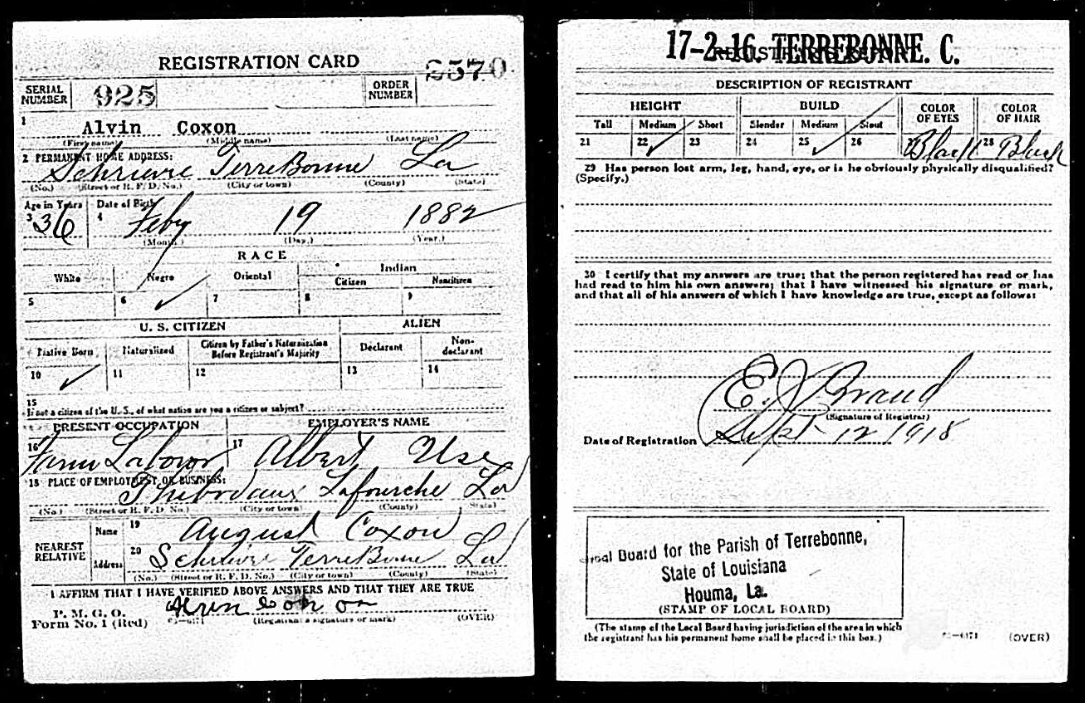 REGISTRATION CARD
SERIAL NUMBER 925 ORDER NUMBER 2570
1 Alvin Coxon
(First name) (Middle name) (Last name)
2 PERMANENT HOME ADDRESS:
Schriever TerreBonne La
(No.) (Street or R. F. D. No.) (City or town) (County) (State)
Age in Years Date of Birth
3 36 4 Feby 19 1882
(Month.) (Day.) (Year.)
RACE
White Negro Oriental Indian
Citizen Noncitizen
5 6 ✓ 7 8 9
U. S. CITIZEN ALIEN
Native Born Naturalized Citizen by Father's Naturalization Before Registrant's Majority Declarant Non-declarant
10 ✓ 11 12 13 14
15
If not a citizen of the U. S., of what nation are you a citizen or subject?
PRESENT OCCUPATION EMPLOYER'S NAME
16 Farm Labour 17 Albert Use
18 PLACE OF EMPLOYMENT OR BUSINESS:
Thibodaux Lafourche La
(No.) (Street or R. F. D. No.) (City or town) (County) (State)
NEAREST RELATIVE Name 19 August Coxon
Address 20 Schriever TerreBonne La
(No.) (Street or R. F. D. No.) (City or town) (County) (State)
I AFFIRM THAT I HAVE VERIFIED ABOVE ANSWERS AND THAT THEY ARE TRUE
P. M. G. O.
Form No. 1 (Red) (Registrant's signature or mark) (OVER)
17-2-16. TERREBONNE. C.
DESCRIPTION OF REGISTRANT
HEIGHT BUILD COLOR OF EYES COLOR OF HAIR
Tall Medium Short Slender Medium Stout
21 22 ✓ 23 24 25 ✓ 26 Black 28 Black
29 Has person lost arm, leg, hand, eye, or is he obviously physically disqualified?
(Specify.)
30 I certify that my answers are true; that the person registered has read or has
had read to him his own answers; that I have witnessed his signature or mark,
and that all of his answers of which I have knowledge are true, except as follows:
E J Braud
(Signature of Registrar)
Date of Registration Sept 12 1918
Local Board for the Parish of Terrebonne,
State of Louisiana
Houma, La.
(STAMP OF LOCAL BOARD)
(The stamp of the Local Board having jurisdiction of the area in which
the registrant has his permanent home shall be placed in this box.)
(OVER)